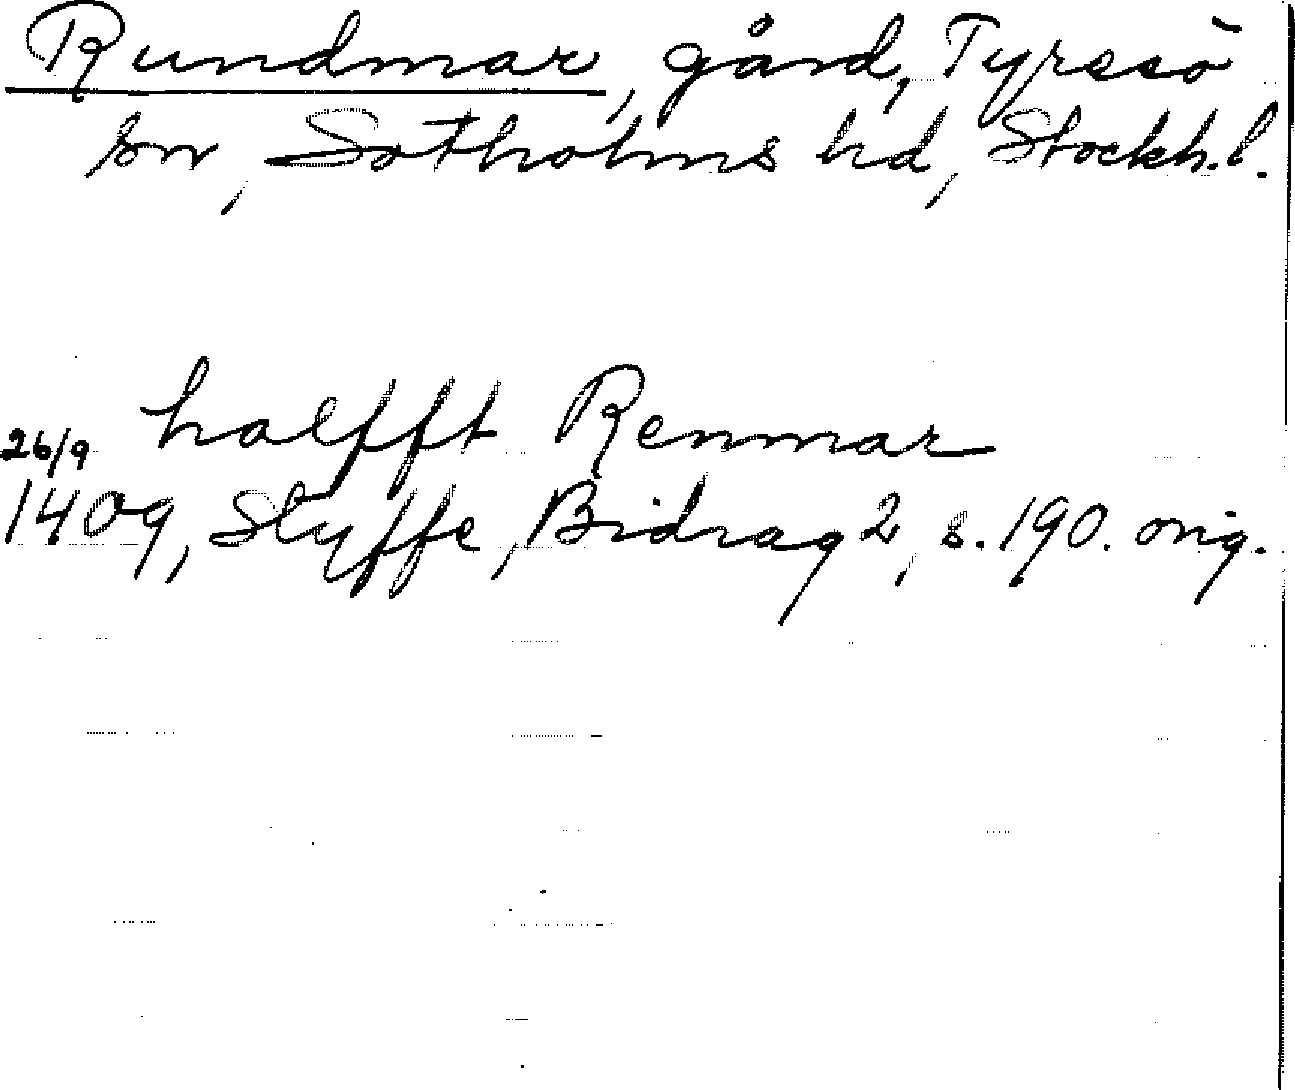 Rundmar, gård, Tyresö
sn, Sotholms hd, Stockh. l.
halfft Renmar
26/9
1409, Styffe, Bidrag 2, s. 190. orig.